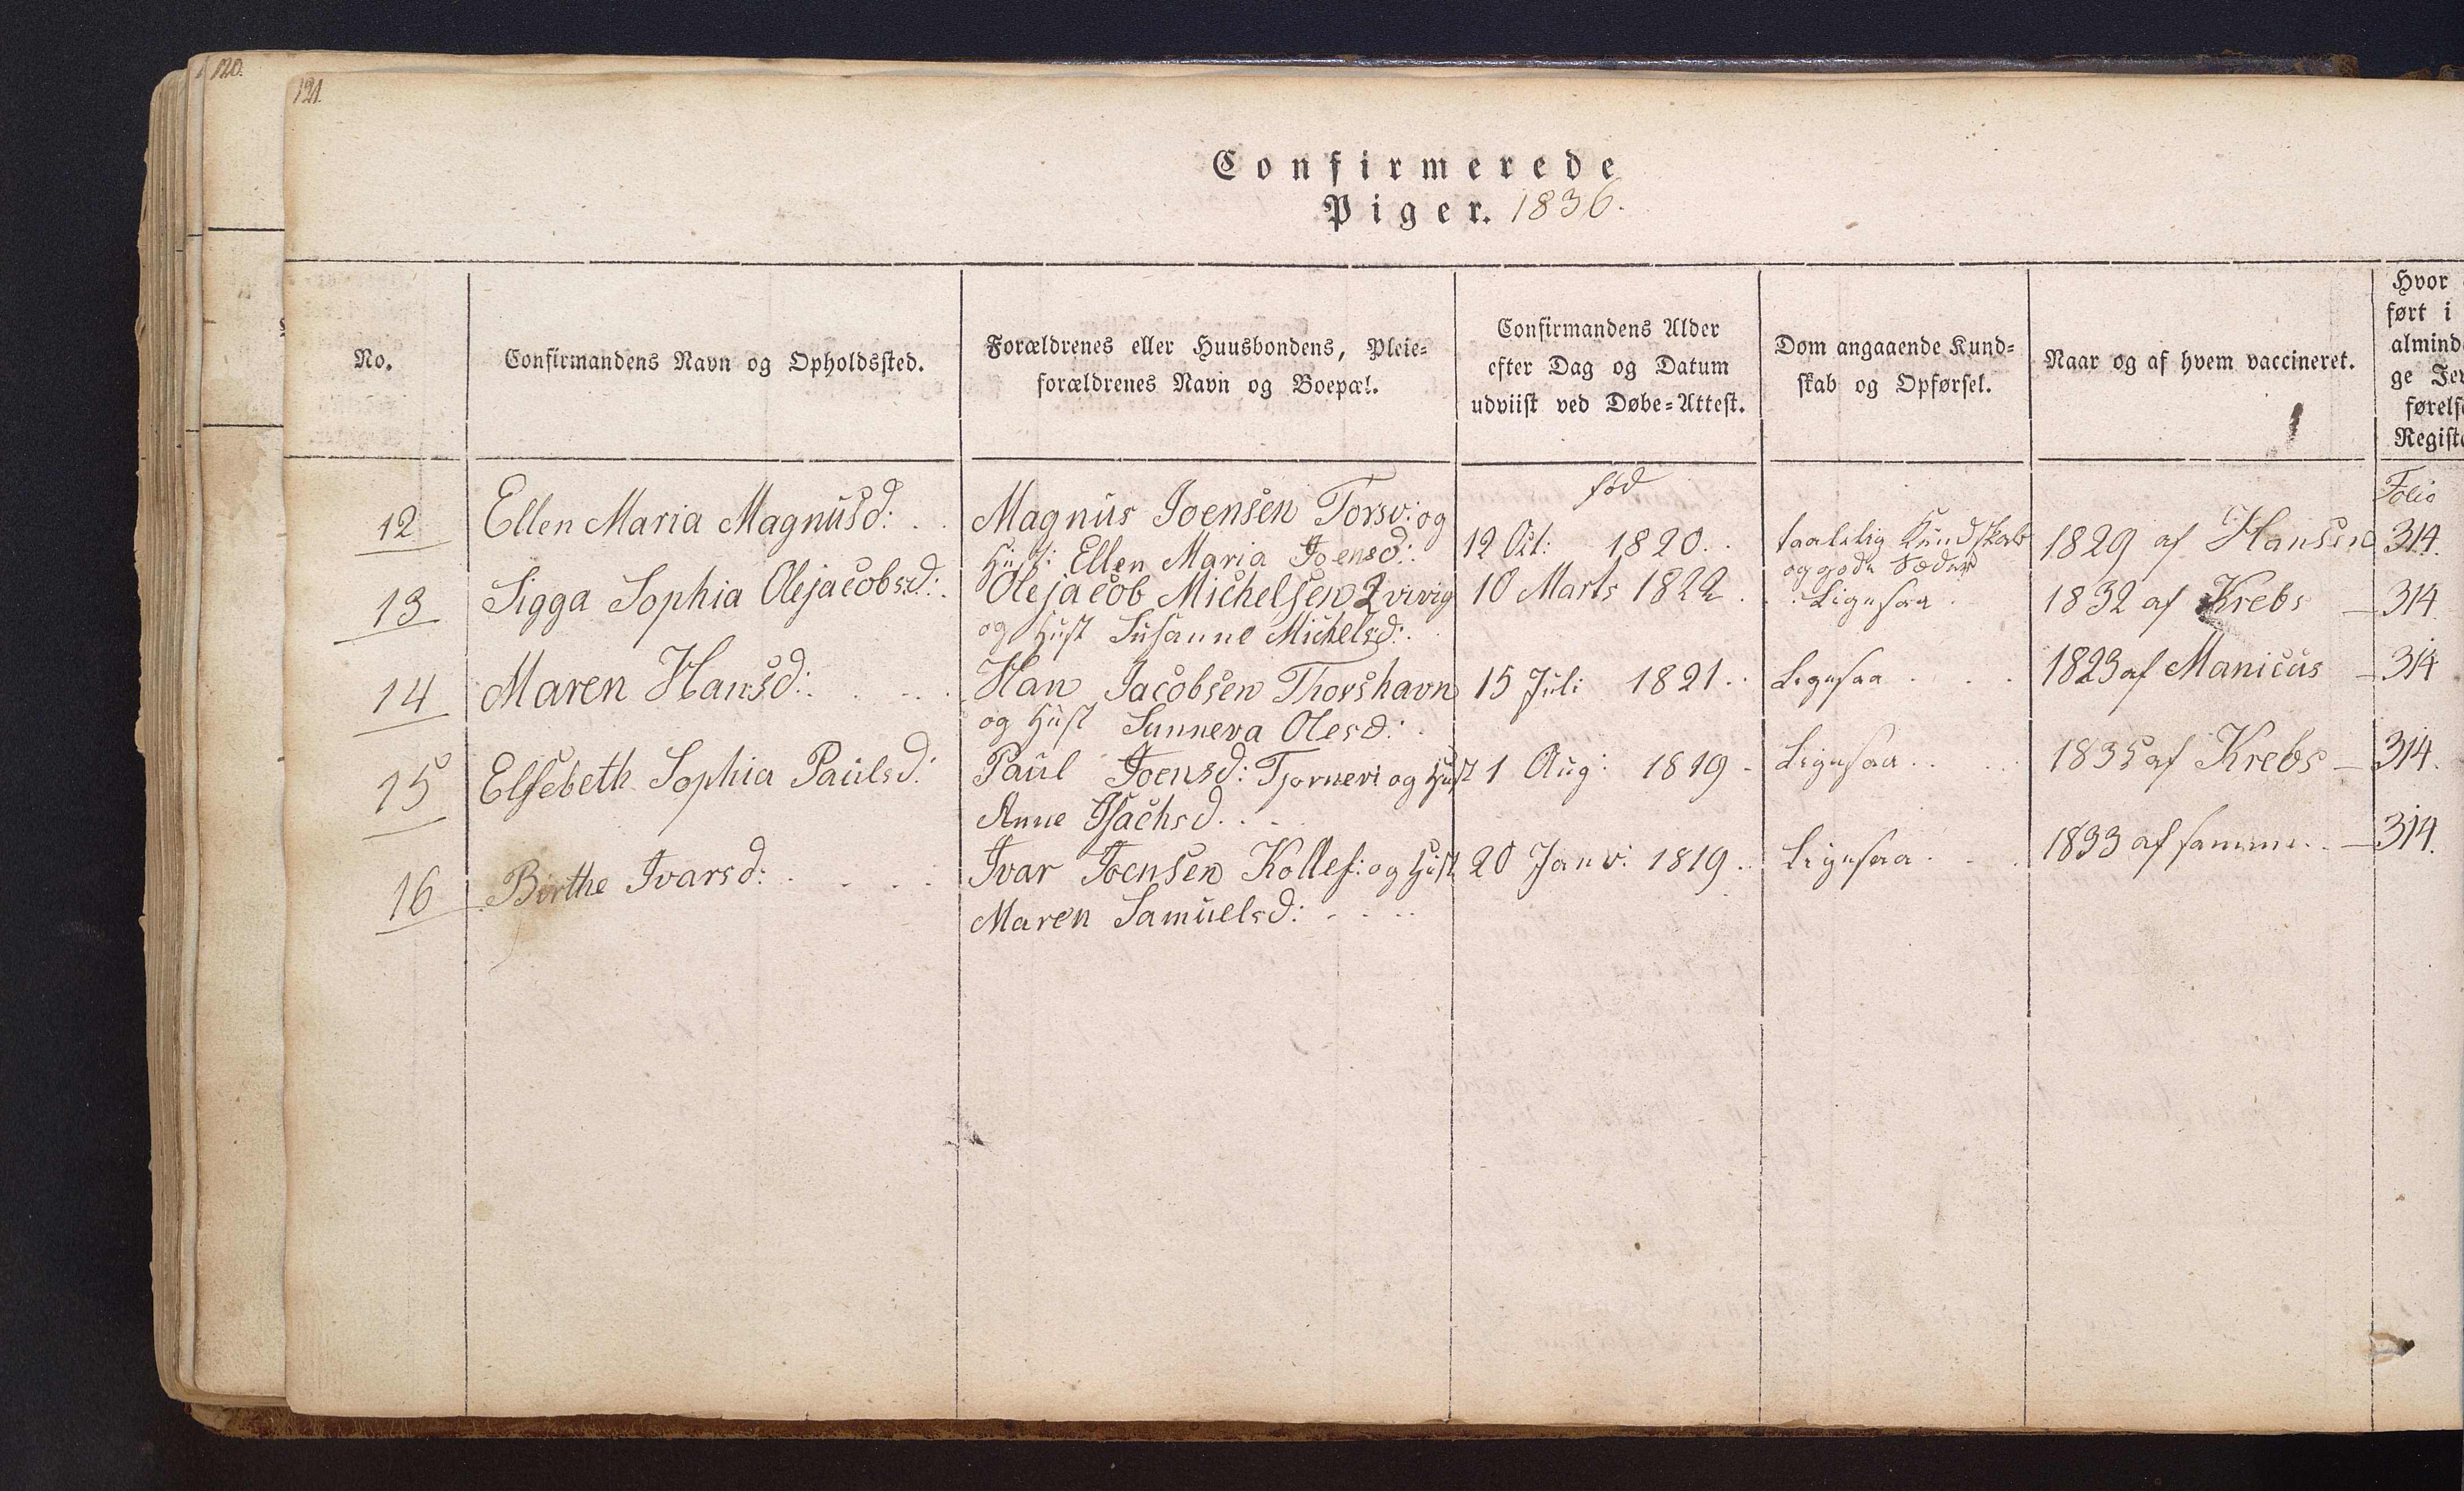 120.
121.
Confirmerede
Piger. 1836.
No.
Confirmandens Navn og Opholdssted.
Forældrenes eller Huusbondens, Pleie=
forældrenes Navn og Boepæl.
Confirmandens Alder
efter Dag og Datum
udviist ved Døbe=Attest.
Dom angaaende Kund=
skab og Opførsel.
Naar og af hvem vaccineret.
Hvor
ført i
almind
ge Jev
førels
Regist
fød
Folio
12 Ellen Maria Magnusd: . . Magnus Joensen Torsv: og 12 Oct: 1820. . taalelig Kundskab 1829 af Hansen 314.
Hust: Ellen Maria Joensd: og gode Sæder
13 Sigga Sophia Olejacobsd: . Olejacob Michelsen 10 Marts 1822 . . . Ligesaa . 1832 af Krebs — 314.
og Hust Susanne Michelsd: .
14 Maren Hansd: . . . . Han Jacobsen Thorshavn 15 Juli 1821 . . Ligesaa . . . 1823 af Manicus — 314
og Hust Sunneva Olesd: .
15 Elsebeth Sophia Paulsd: Paul Joensd: og Hust 1 Aug: 1819 - Ligesaa . . . . 1835 af Krebs — 314.
Anne Isachsd. . . .
16 Birthe Ivarsd: . . . . Ivar Joensen Kollef: og Hust 20 Janv: 1819 . . Ligesaa . . . 1833 af samme . . — 314.
Maren Samuelsd: . . . .